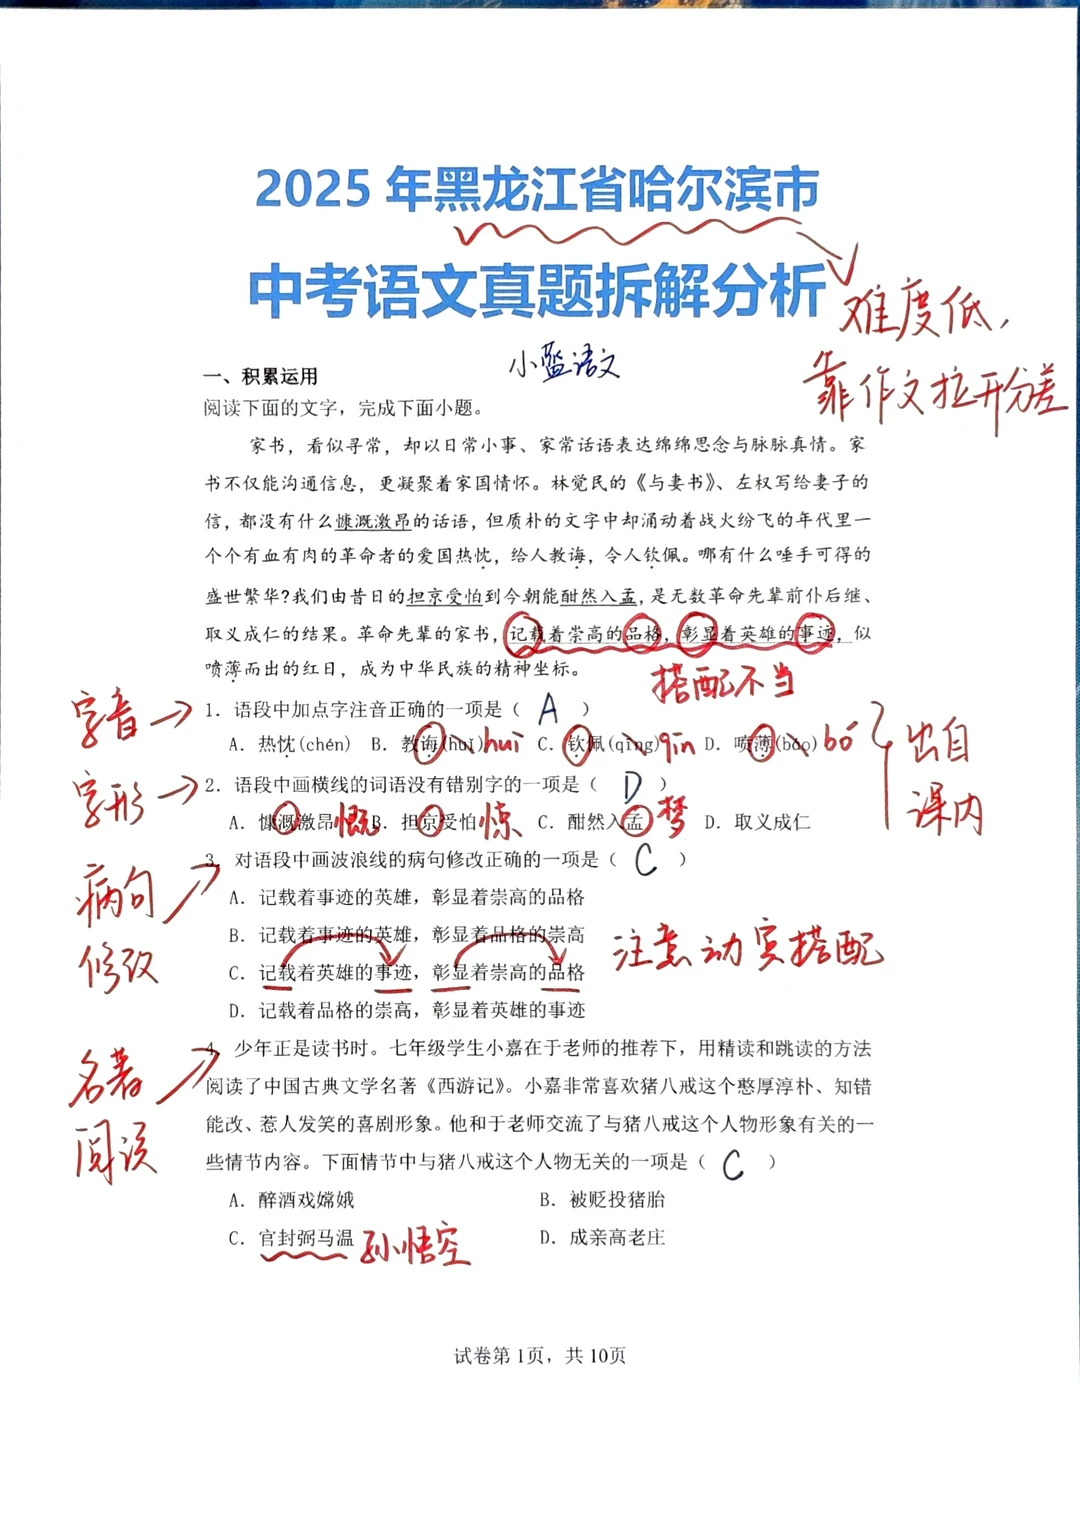 2025年黑龙江省哈尔滨市
中考语文真题拆解分析
难度低，
靠作文拉开分差
小盔语文
一、积累运用
阅读下面的文字，完成下面小题。
家书，看似寻常，却以日常小事、家常话语表达绵绵思念与脉脉真情。家
书不仅能沟通信息，更凝聚着家国情怀。林觉民的《与妻书》、左权写给妻子的
信，都没有什么慷溉激昂的话语，但质朴的文字中却涌动着战火纷飞的年代里一
个个有血有肉的革命者的爱国热忱，给人教诲，令人钦佩。哪有什么唾手可得的
盛世繁华?我们由昔日的担京受怕到今朝能酣然入孟，是无数革命先辈前仆后继、
取义成仁的结果。革命先辈的家书，记载着崇高的品格，彰显着英雄的事迹，似
喷薄而出的红日，成为中华民族的精神坐标。
搭配不当
字音
1．语段中加点字注音正确的一项是（ A ）
A．热忱(chén) B．教诲(huǐ) huì C．钦佩(qīng) qīn D．喷薄(báo) bó
出自
课内
字形
2．语段中画横线的词语没有错别字的一项是（ D ）
A．慷溉激昂 慨 B．担京受怕 惊 C．酣然入孟 梦 D．取义成仁
病句
修改
3．对语段中画波浪线的病句修改正确的一项是（ C ）
A．记载着事迹的英雄，彰显着崇高的品格
B．记载着事迹的英雄，彰显着品格的崇高
C．记载着英雄的事迹，彰显着崇高的品格
注意动宾搭配
D．记载着品格的崇高，彰显着英雄的事迹
名著
阅读
4．少年正是读书时。七年级学生小嘉在于老师的推荐下，用精读和跳读的方法
阅读了中国古典文学名著《西游记》。小嘉非常喜欢猪八戒这个憨厚淳朴、知错
能改、惹人发笑的喜剧形象。他和于老师交流了与猪八戒这个人物形象有关的一
些情节内容。下面情节中与猪八戒这个人物无关的一项是（ C ）
A．醉酒戏嫦娥 B．被贬投猪胎
C．官封弼马温 孙悟空 D．成亲高老庄
试卷第1页，共10页